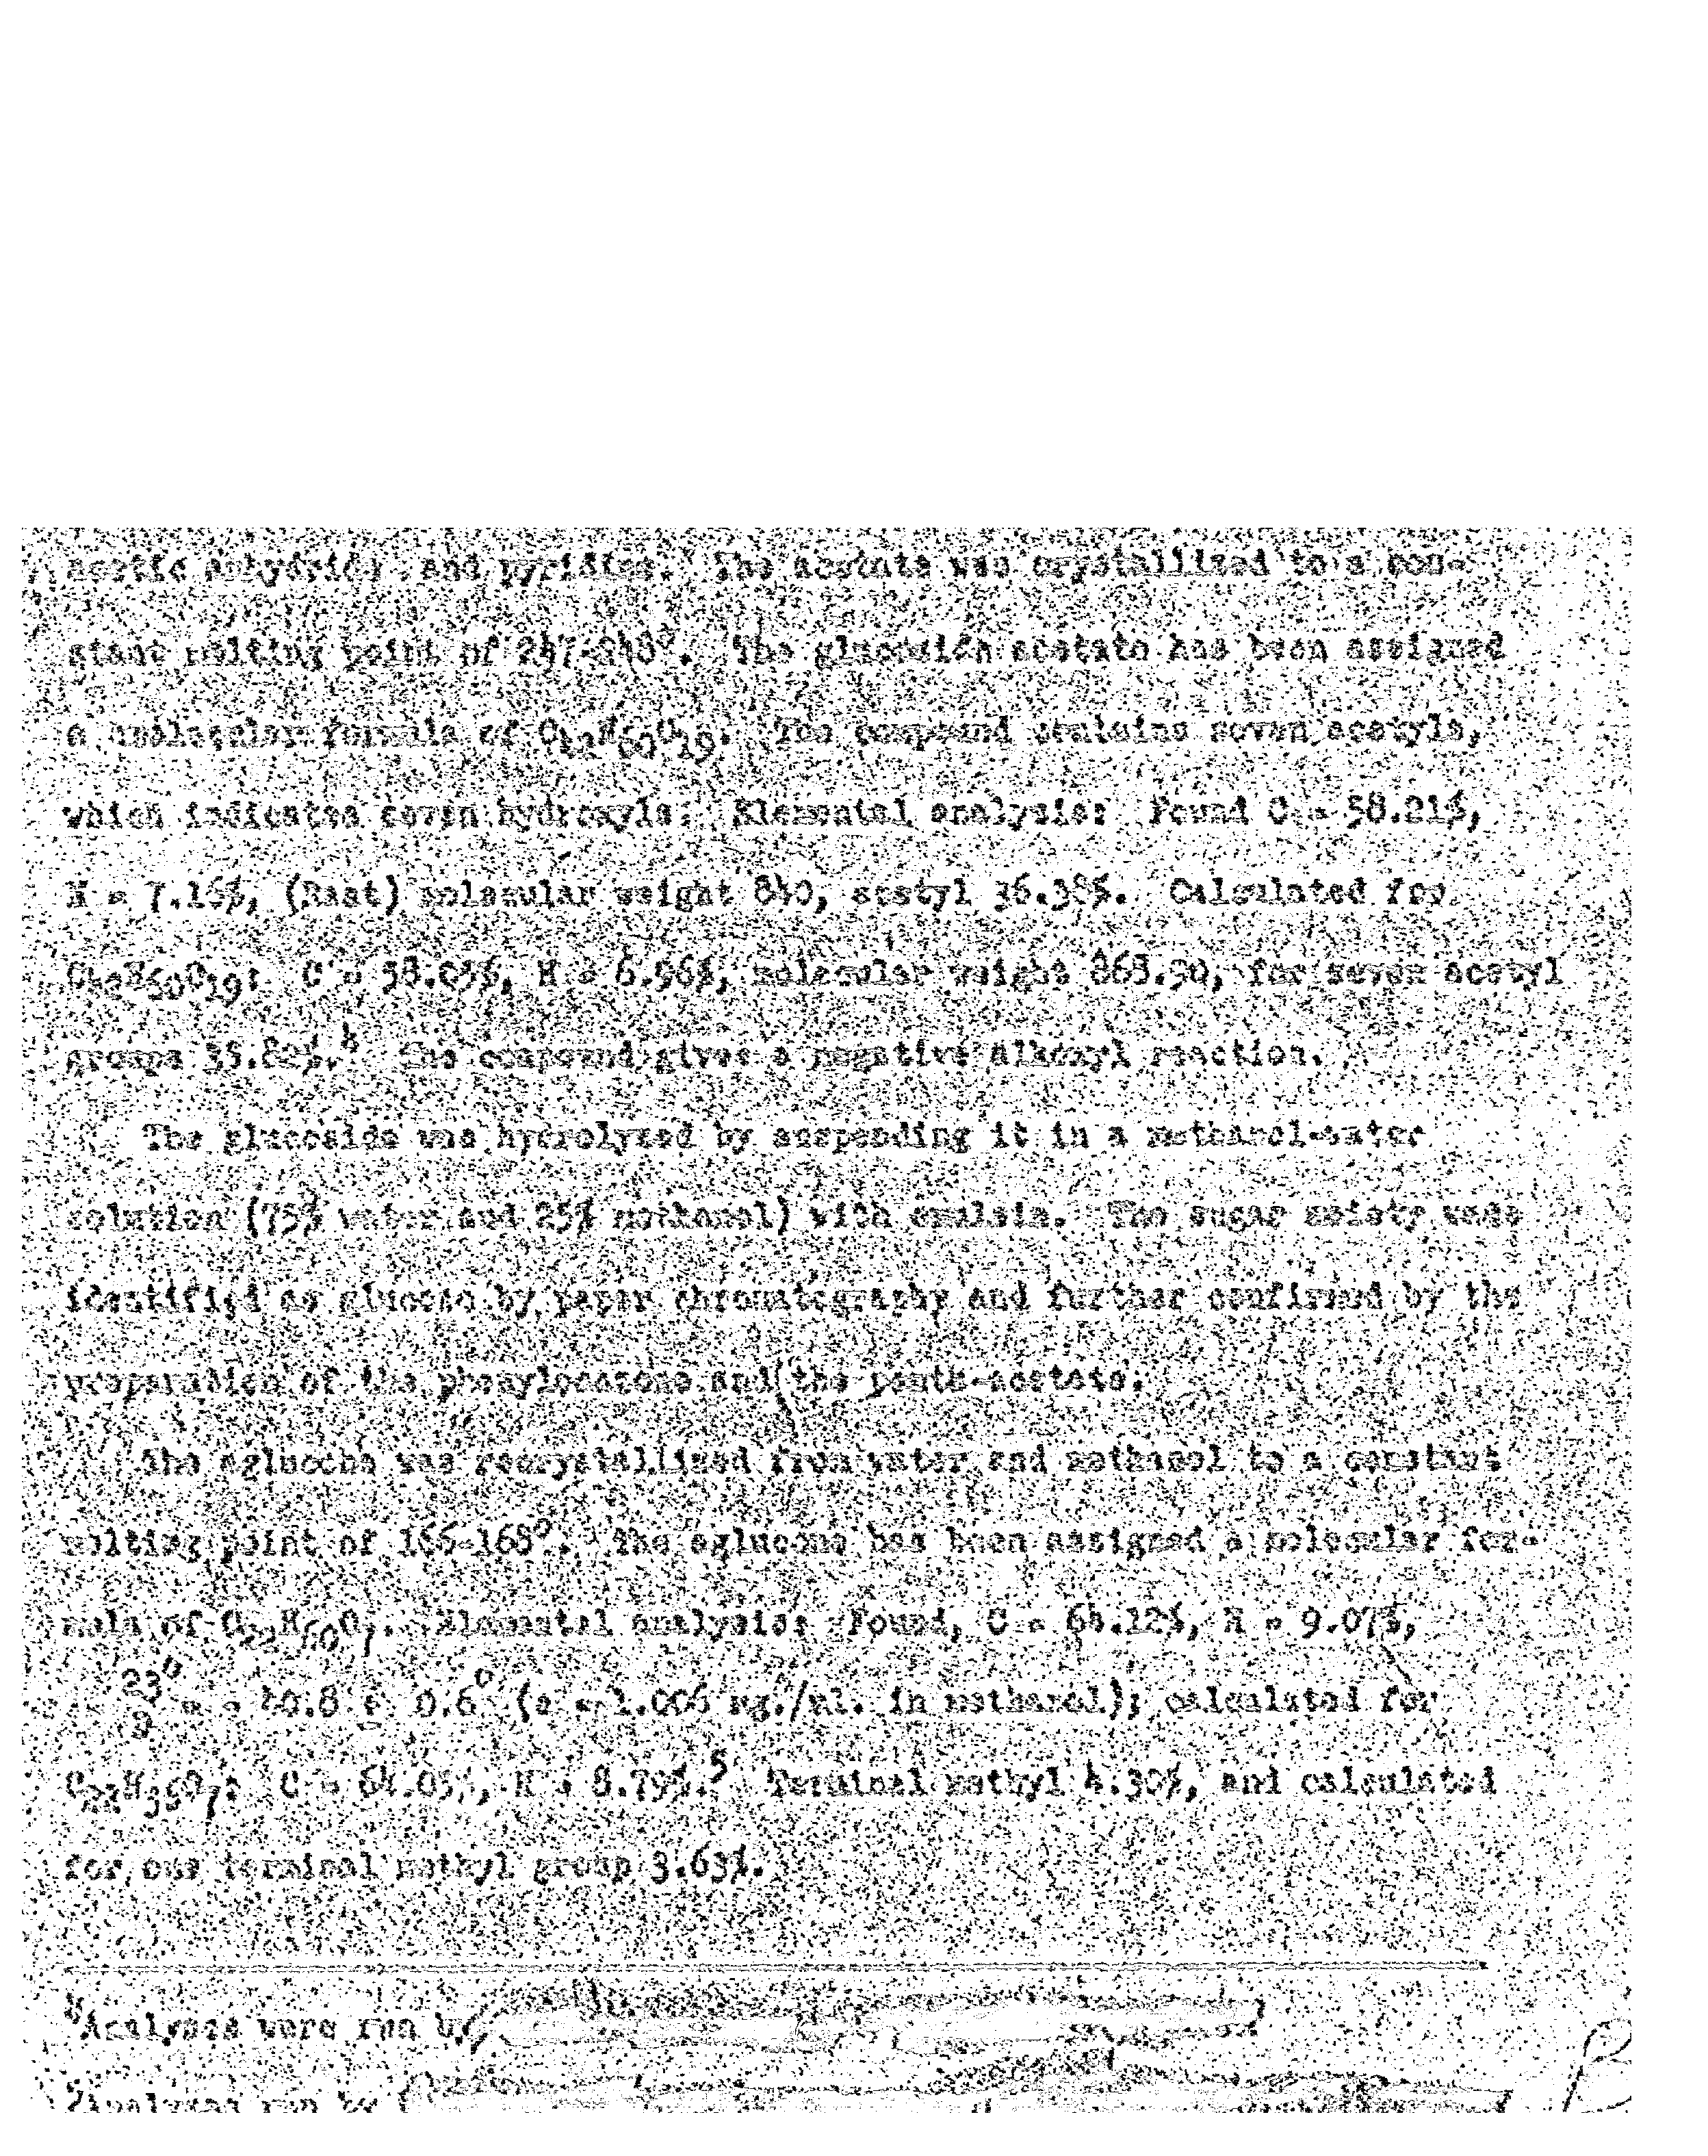 acetic anhydride and pyridine. The acetate was crystallized to a con-
stant melting point of 247-248°. The glucoside acetate has been assigned
a molecular formula of C42H60O19. The compound contains seven acetyls,
which indicates seven hydroxyls. Elemental analysis: Found C = 58.21%,
H = 7.16%, (Rast) molecular weight 840, acetyl 36.38%. Calculated for
C42H60O19: C = 58.05%, H = 6.96%, molecular weight 868.90, for seven acetyl
groups 35.82%.4 The compound gives a negative alkoxyl reaction.
The glucoside was hydrolyzed by suspending it in a methanol-water
solution (75% water and 25% methanol) with emulsin. The sugar moiety was
identified as glucose by paper chromatography and further confirmed by the
preparation of the phenylosazone and the penta-acetate.
The aglucone was recrystallized from water and methanol to a constant
melting point of 166-168°. The aglucone has been assigned a molecular for-
mula of C22H60O7. Elemental analysis: Found, C = 64.12%, H = 9.07%,
23° = - 40.8 ± 0.6° (c = 1.006 mg./ml. in methanol); calculated for
C22H36O7: C = 64.05%, H = 8.79%.5 Terminal methyl 4.30%, and calculated
for one terminal methyl group 3.63%.
4Analyses were run by
5Analyses run by